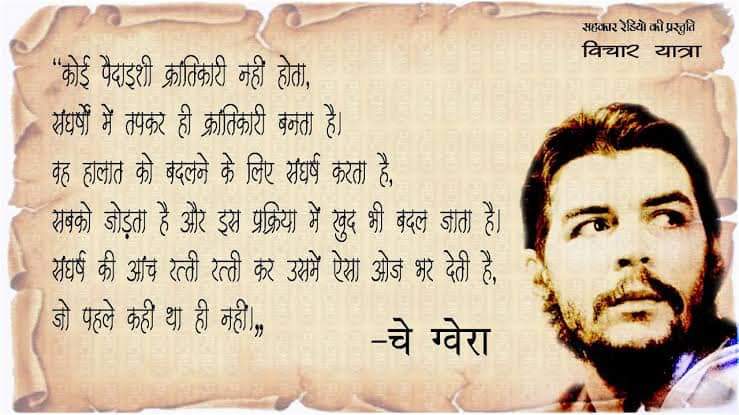 सहकार रेडियो की प्रस्तुति
विचार यात्रा
“कोई पैदाइशी क्रांतिकारी नहीं होता,
संघर्षों में तपकर ही क्रांतिकारी बनता है।
वह हालात को बदलने के लिए संघर्ष करता है,
सबको जोड़ता है और इस प्रक्रिया में खुद भी बदल जाता है।
संघर्ष की आंच रत्ती रत्ती कर उसमें ऐसा ओज भर देती है,
जो पहले कहीं था ही नहीं।„
-चे ग्वेरा